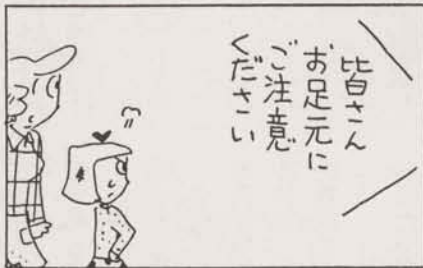 皆さん
お足元に
ご注意
ください